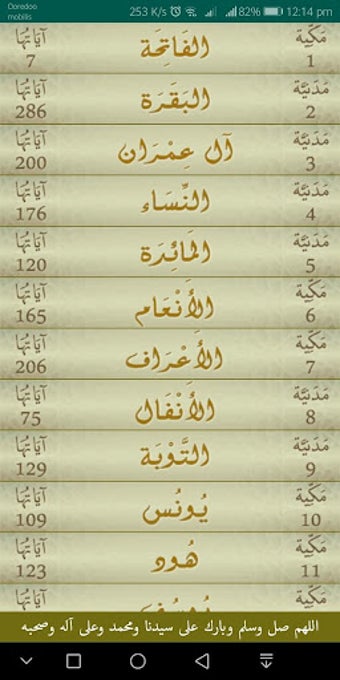 Ooredoo
mobilis
253 K/s 82% 12:14 pm
مَكِّيَة الفَاتِحَة آيَاتُهَا
1 7
مَدَنيَّة البَقَرَة آيَاتُهَا
2 286
مَدَنيَّة آل عِمْرَان آيَاتُهَا
3 200
مَدَنيَّة النِّسَاء آيَاتُهَا
4 176
مَدَنيَّة المَائِدَة آيَاتُهَا
5 120
مَكِّيَة الأَنْعَام آيَاتُهَا
6 165
مَكِّيَة الأَعْرَاف آيَاتُهَا
7 206
مَدَنيَّة الأَنْفَال آيَاتُهَا
8 75
مَدَنيَّة التَّوْبَة آيَاتُهَا
9 129
مَكِّيَة يُونُس آيَاتُهَا
10 109
مَكِّيَة هُود آيَاتُهَا
11 123
اللهم صل وسلم وبارك على سيدنا ومحمد وعلى آله وصحبه